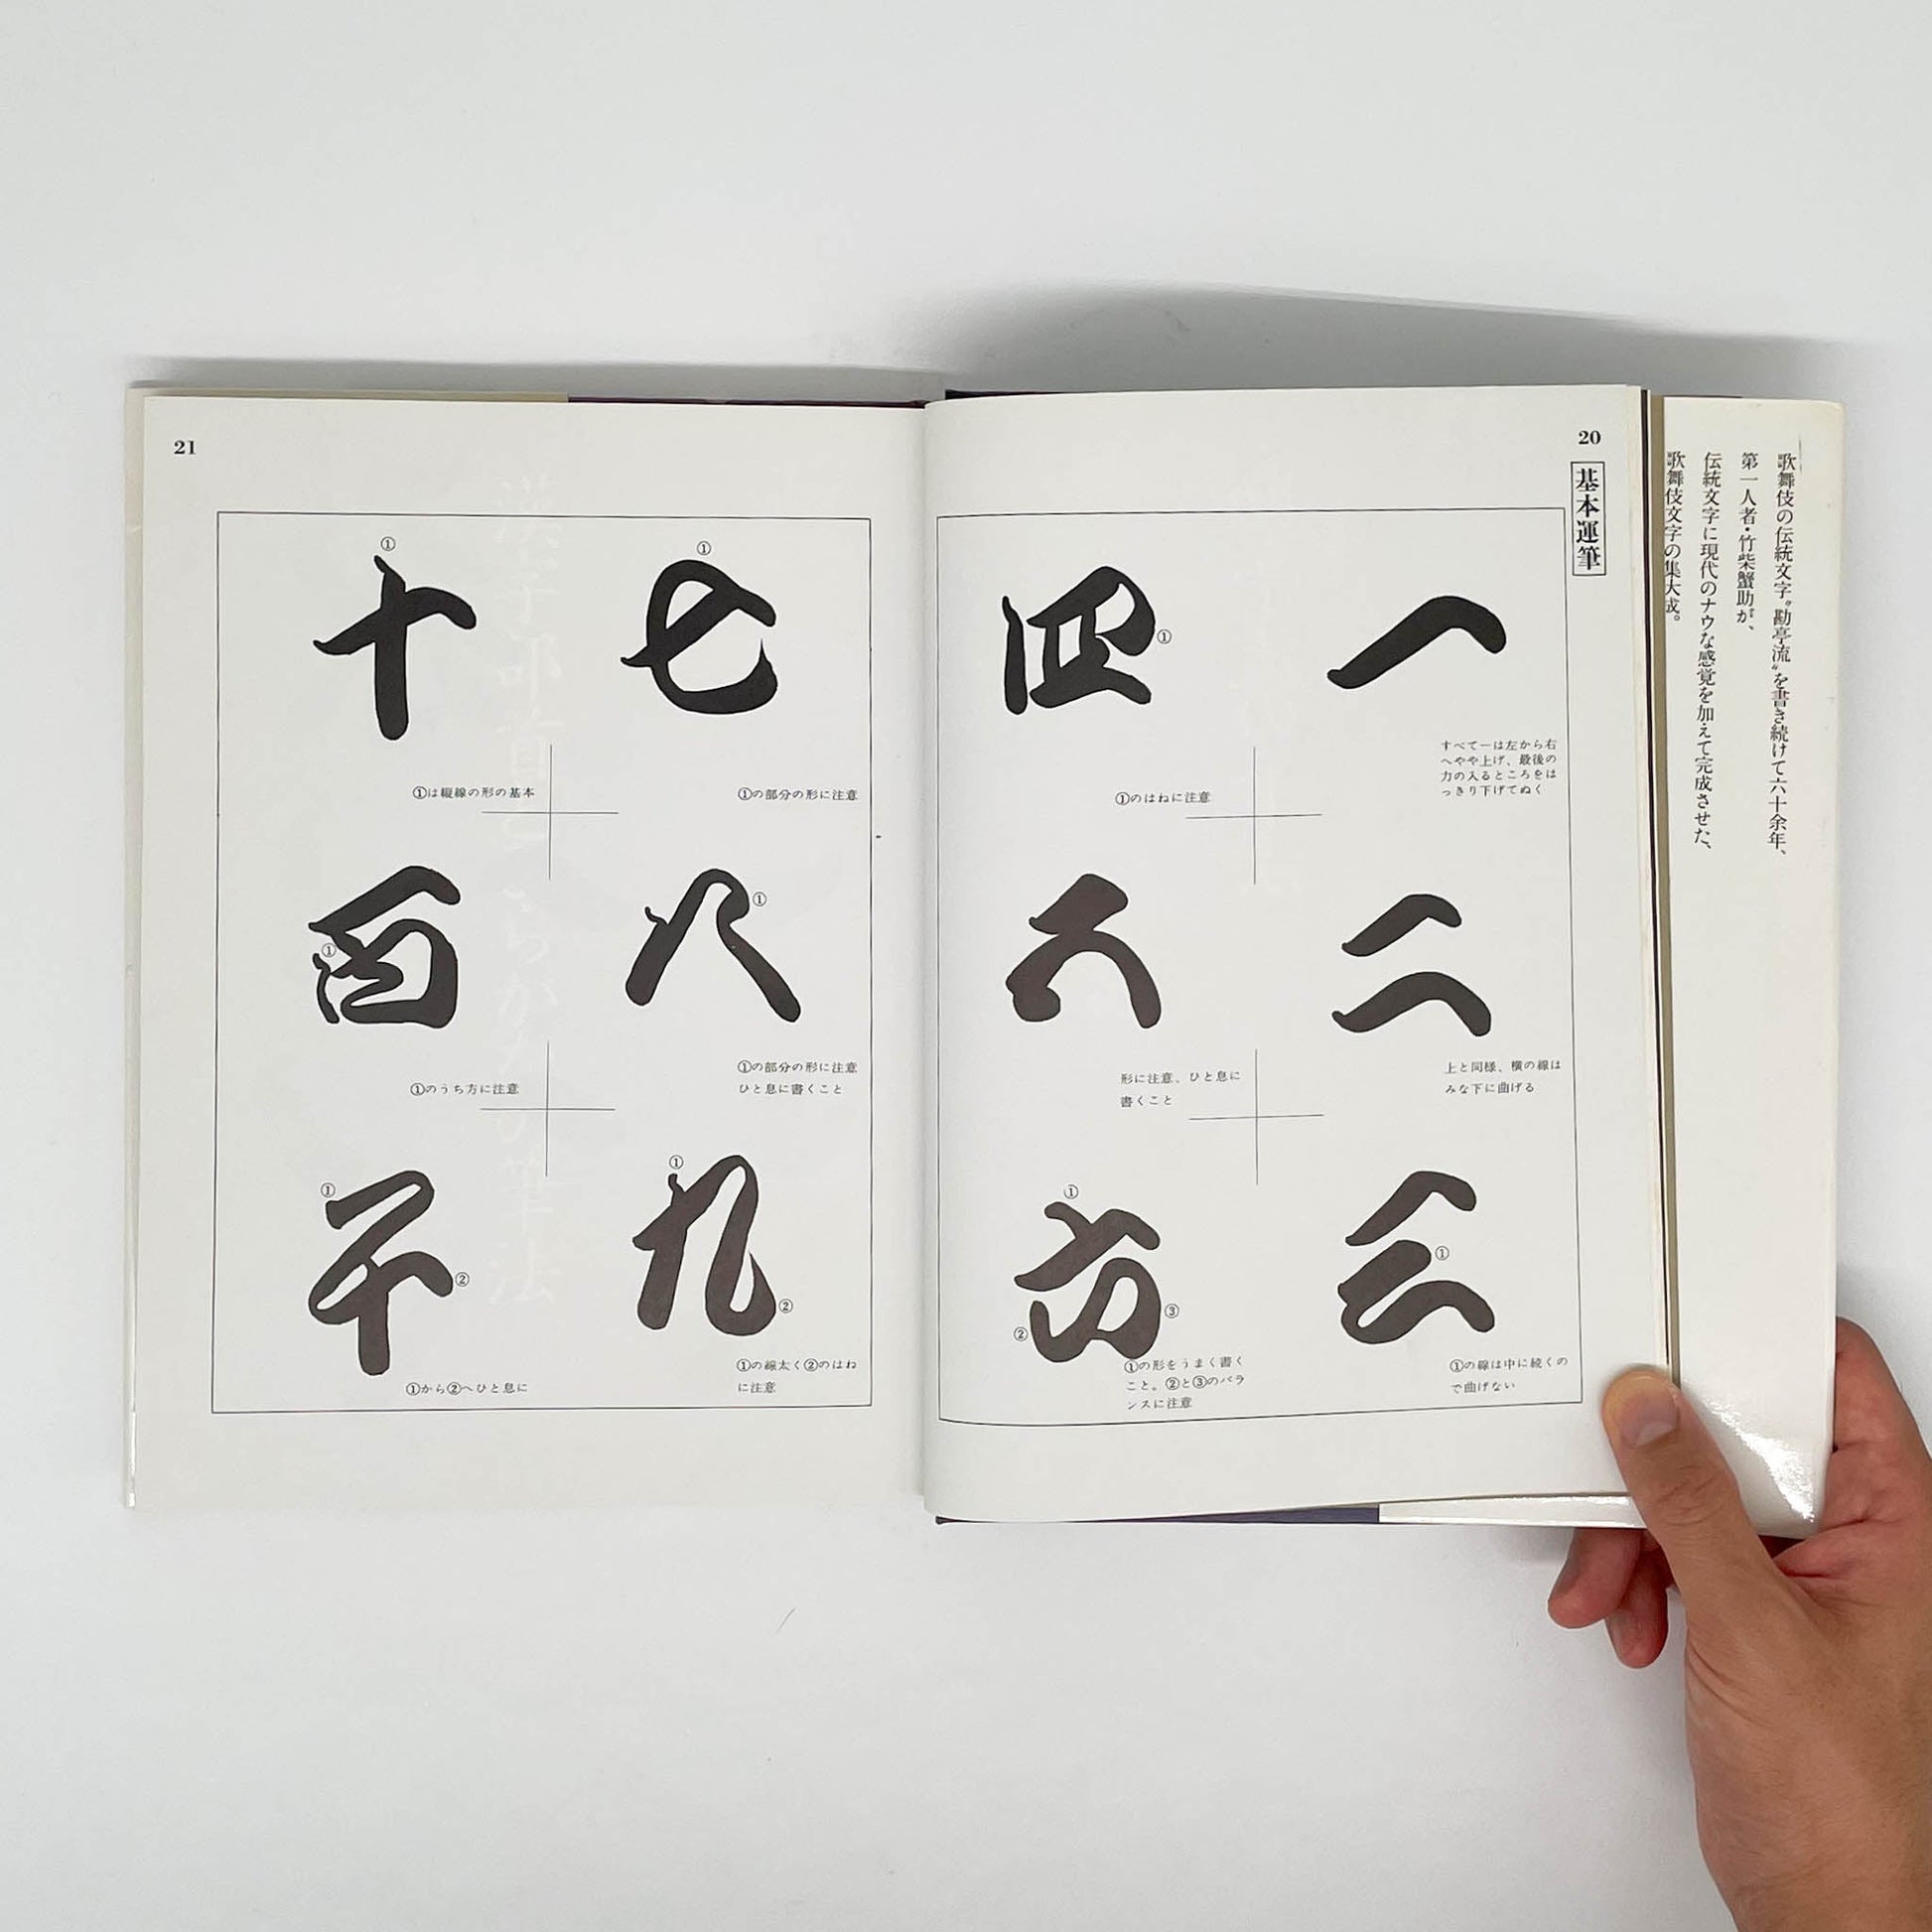 歌舞伎の伝統文字〝勘亭流〟を書き続けて六十余年、
第一人者・竹柴蟹助が、
伝統文字に現代のナウな感覚を加えて完成させた、
歌舞伎文字の集大成。
20
基本運筆
一
すべて一は左から右
へやや上げ、最後の
力の入るところをは
っきり下げてぬく
二
上と同様、横の線は
みな下に曲げる
三
①
①の線は中に続くの
で曲げない
四
①
①のはねに注意
五
形に注意、ひと息に
書くこと
六
①
②
③
①の形をうまく書く
こと。②と③のバラ
ンスに注意
21
七
①
①の部分の形に注意
八
①
①の部分の形に注意
ひと息に書くこと
九
①
②
①の線太く②のはね
に注意
十
①
①は縦線の形の基本
百
①
①のうち方に注意
千
①
②
①から②へひと息に